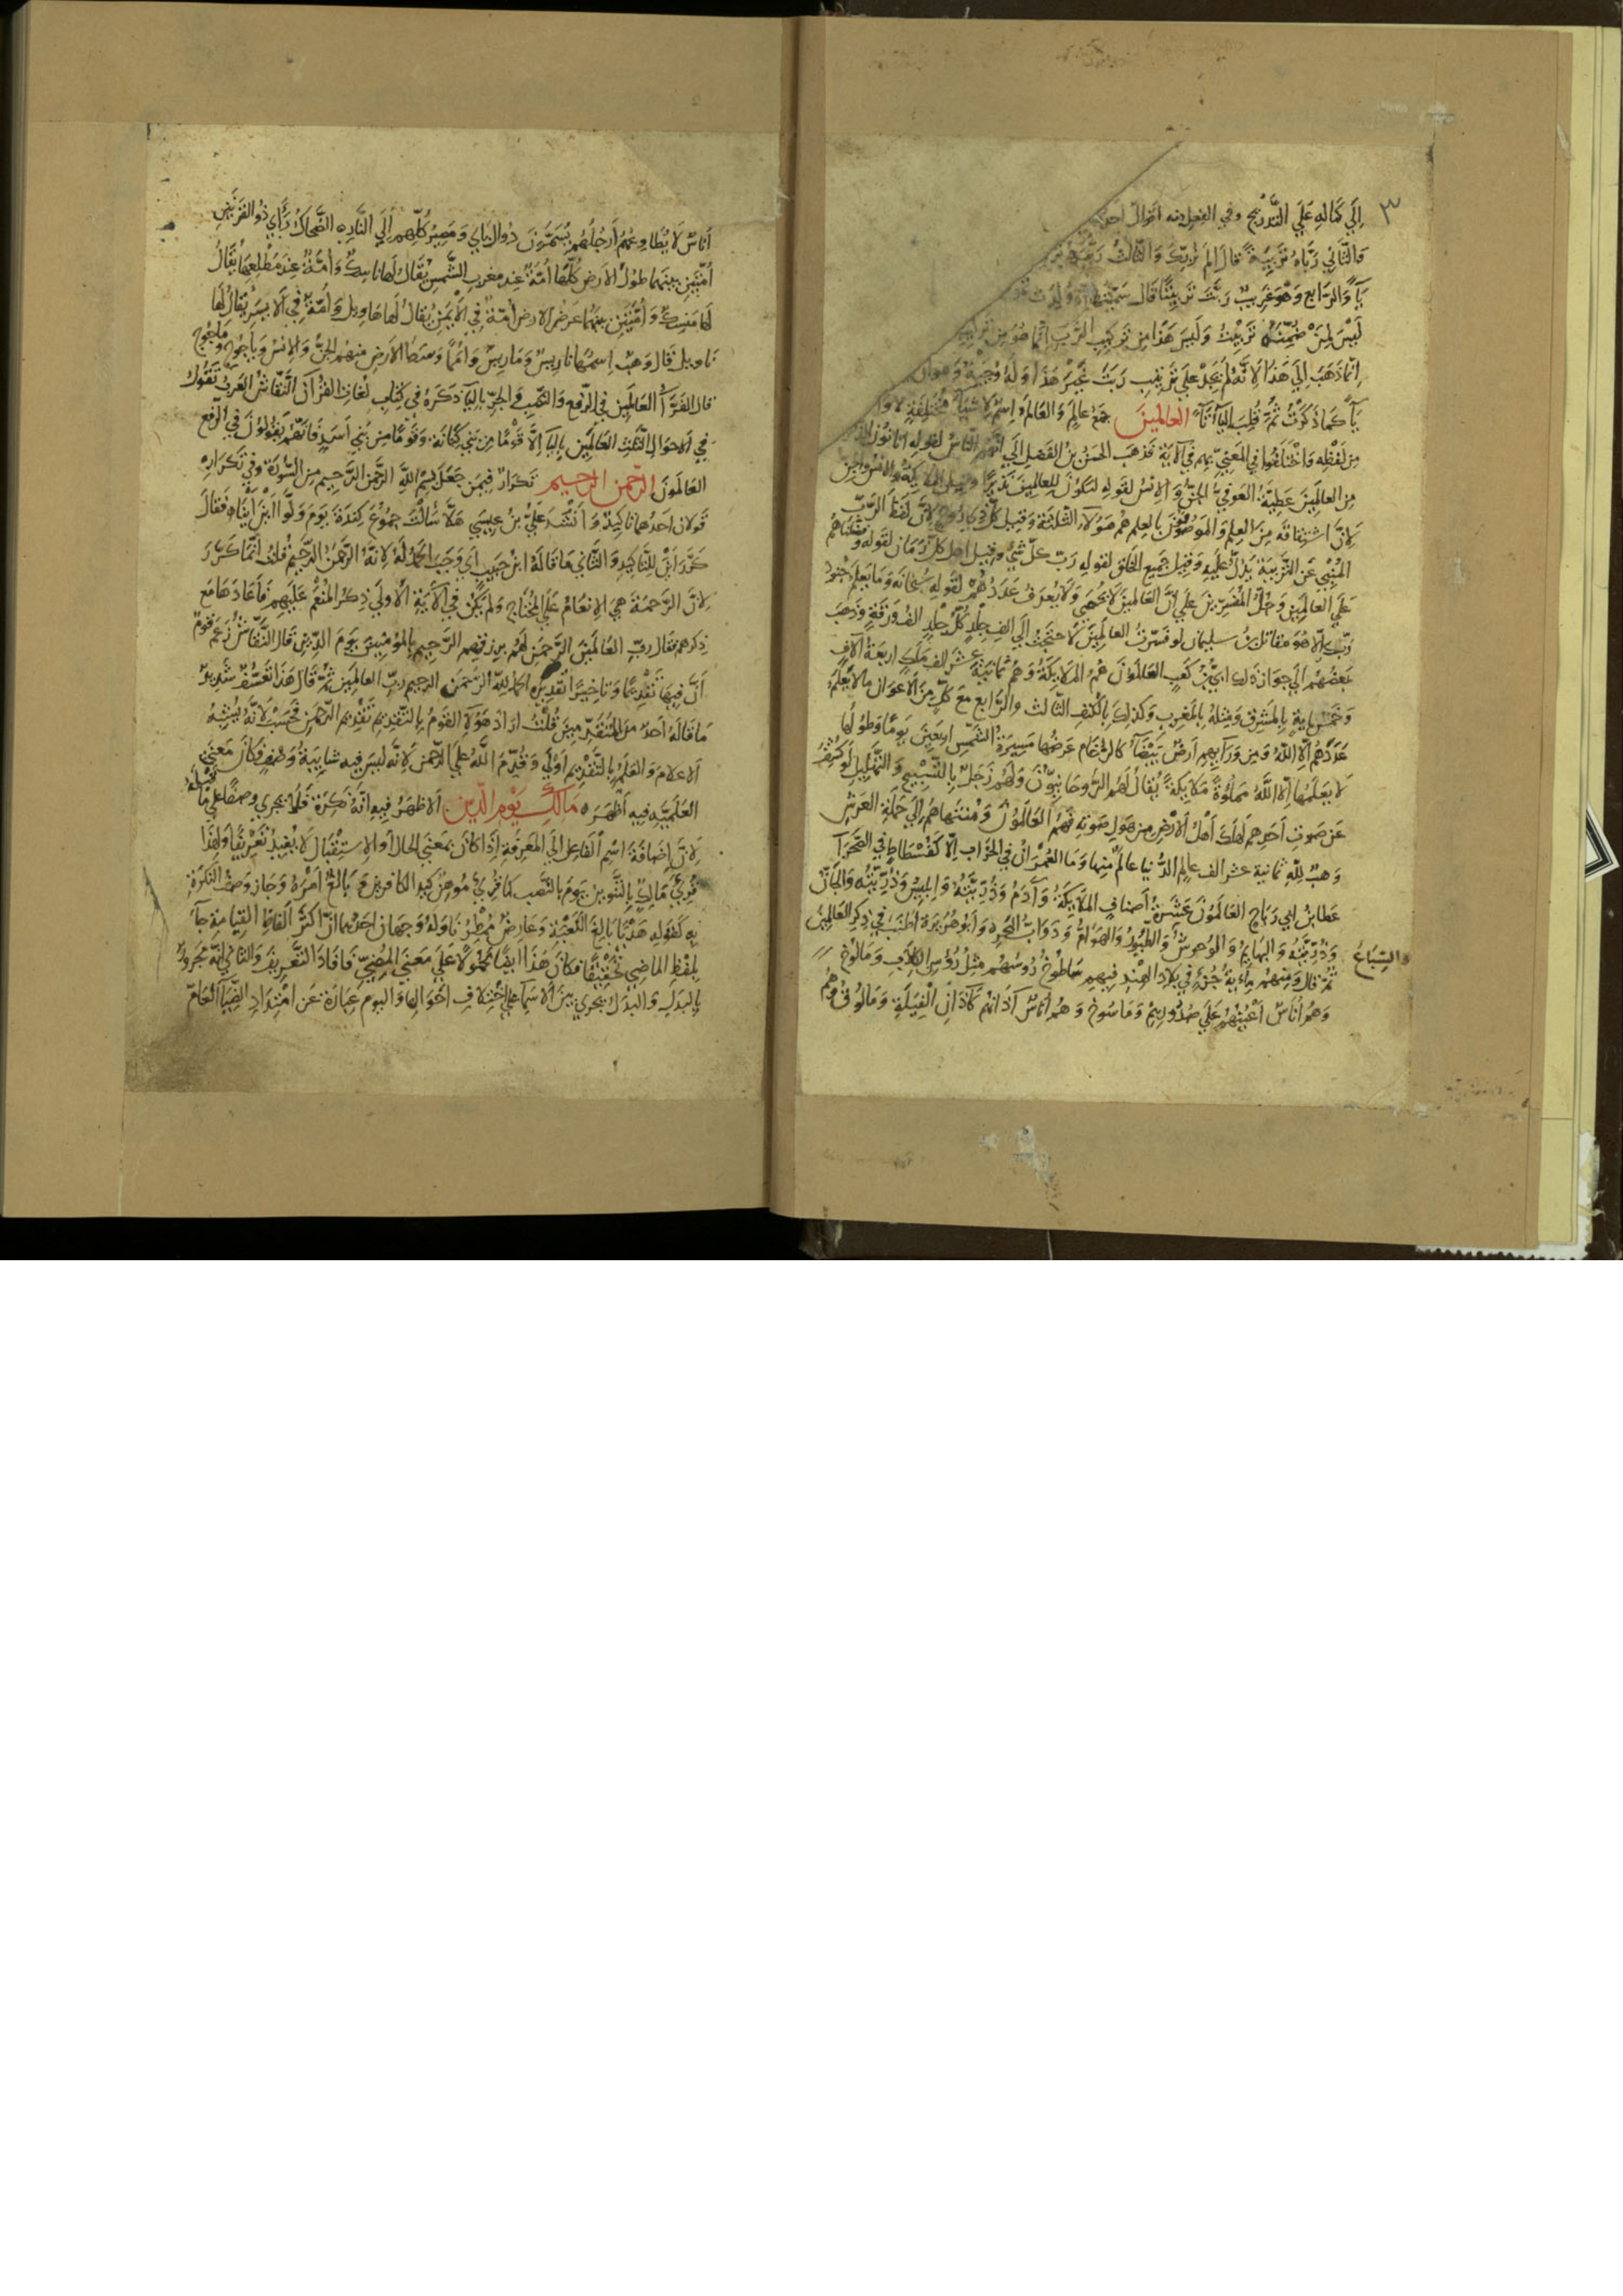 ٣
إلي كماله علي التدريج وفي الفعل منه أقوال أحدها
فالثاني ربّاه تربية قال ألم نربك والثالث ربّبه
ياً والرابع وهو غريب ربّت تربيتا قال سمّيتها إذ ولدت
ليس لمن ضمنته تربيت وليس هذا من تركيب الرب إنما هو من
إنما ذهب إلي هذا لأنه لم يجد علي ترتيب ربت غير هذا وله وجيه وهو أن
ياً كما ذكرت ثم قلب الياء تاء العالمين جمع عالم والعالم اسم لأشياء مختلفة لا واحد
من لفظه واختلفوا في المعني بهم في الآية فذهب الحسن بن الفضل إلي أنهم الناس لقوله أتأتون الذكران
من العالمين عطية العوفي الجن والإنس لقوله ليكون للعالمين نذيرا وقيل الملائكة والإنس والجن
لأن اشتقاقه من العلم والموصوفون بالعلم هم هؤلاء الثلاثة وقيل كل ذي روح لأن لفظ الرب
المنبي عن التربية يدل عليه وقيل جميع الخلق لقوله رب كل شيء وقيل أهل كل زمان لقوله وفضلناهم
علي العالمين وجل المفسرين علي أن العالمين لا يحصي ولا يعرف عددهم لقوله سبحانه وما يعلم جنود
ربك إلا هو مقاتل بن سليمان لو فسرت العالمين لاحتجت إلي ألف جلد كل جلد ألف ورقة وذهب
بعضهم إلي جواز ذلك ابي بن كعب العالمون هم الملائكة وهم ثمانية عشر ألف ملك أربعة آلاف
وخمس ماية بالمشرق ومثله بالمغرب وكذلك بالكنف الثالث والرابع مع كل من الأعوان ما لا يعلم
عددهم إلا الله ومن ورآيهم أرض بيضاء كالرخام عرضها مسيرة الشمس أربعين يوما وطولها
لا يعلمها إلا الله مملوة ملايكة يقال لهم الروحانيون ولهم زجل بالتسبيح والتهليل لو كشف
عن صوت أحدهم لهلك أهل الأرض من هول صوته فهم العالمون ومنتهاهم إلي حملة العرش
وهب لله ثمانية عشر ألف عالم الدنيا عالم منها وما العمران في الخراب إلا كفسطاط في الصحرآ
عطا بن ابي رباح العالمون عشرة أصناف الملايكة وآدم وذريته وإبليس وذريته والجان
وذريته والبهايم والوحوش والطيور والهوام ودواب البحر وأبو هريرة أطنب في ذكر العالمين
والسباع
ثم قال ومنهم ماية جزء في بلاد الهند فيهم ساطوخ رؤسهم مثل رؤس الكلاب ومالوخ
وهم أناس أعينهم علي صدورهم وماسوخ وهم أناس آذانهم كآذان الفيلة ومالوف وهم
أناس لا يطاوعهم أرجلهم يسمون دوال ياي ومصير كلهم إلي النار الضحاك رأي ذو القرنين
أمتين بينهما طول الأرض كلها أمة عند مغرب الشمس يقال لها ناسك وأمة عند مطلعها يقال
لها منسك وأمتين بينهما عرض الأرض أمة في الأيمن يقال لها هاويل وأمة في الأيسر يقال لها
تاويل قال وهب اسمهما تاريس ومماريس وأمما وسط الأرض منهم الجن والإنس وياجوج وماجوج
قال الفرآ العالمين في الرفع والنصب والجر بالياء ذكره في كتاب لغات القرآن النقاش العرب تقول
في الأحوال الثلث العالمين بالياء إلا قوما من بني كنانة وقوما من بني أسد فإنهم يقولون في الرفع
العالمون الرحمن الرحيم تكرار فيمن جعل بسم الله الرحمن الرحيم من السورة وفي تكراره
قولان أحدهما تاكيد وأنشد علي بن عيسي هلا سألت جموع كندة يوم ولوا أين أينا فقال
كرر أين للتاكيد والثاني ما قاله ابن حبيب أي وجب الحمد له لأنه الرحمن الرحيم قلت إنما كرر
لأن الرحمة هي الإنعام علي المحتاج ولم يكن في الآية الأولي ذكر المنعم عليهم فأعادها مع
ذكرهم فقال رب العالمين الرحمن لهم يرزقهم الرحيم بالمؤمنين يوم الدين قال النقاش زعم قوم
أن فيها تقديما وتاخيرا تقديره الحمد لله الرحمن الرحيم رب العالمين ثم قال هذا تعسف شديد
ما قاله أحد من المتقدمين قلت أراد هؤلاء القوم بالتقديم تقديم الرحمن فحسب لأنه يشبه
الأعلام والعلم بالتقديم أولي وقدم الله علي الرحمن لأنه ليس فيه شايبة وصف فكان معني
العلمية فيه أظهر مالك يوم الدين الأظهر فيه أنه نكرة فلم يجري وصفا علي ما قبله
لأن إضافة اسم الفاعل إلي المعرفة إذا كان بمعني الحال أو الاستقبال لا يفيد تعريفا ولهذا
قري مالك بالتنوين يوم بالنصب كما قري موهن كيد الكافرين و بالغ أمره وجاز وصف النكرة
به كقوله هديا بالغ الكعبة وعارض ممطرنا وله وجهان أحدهما أن أكثر ألفاظ القيامة جآ
بلفظ الماضي تحقيقا فكان هذا أيضا محمولا علي معني المضي فأفاد التعريف والثاني أنه مجرور
بالبدل والبدل يجري بين الأسمآ علي اختلاف أحوالها واليوم عبارة عن امتداد الضيآ العام